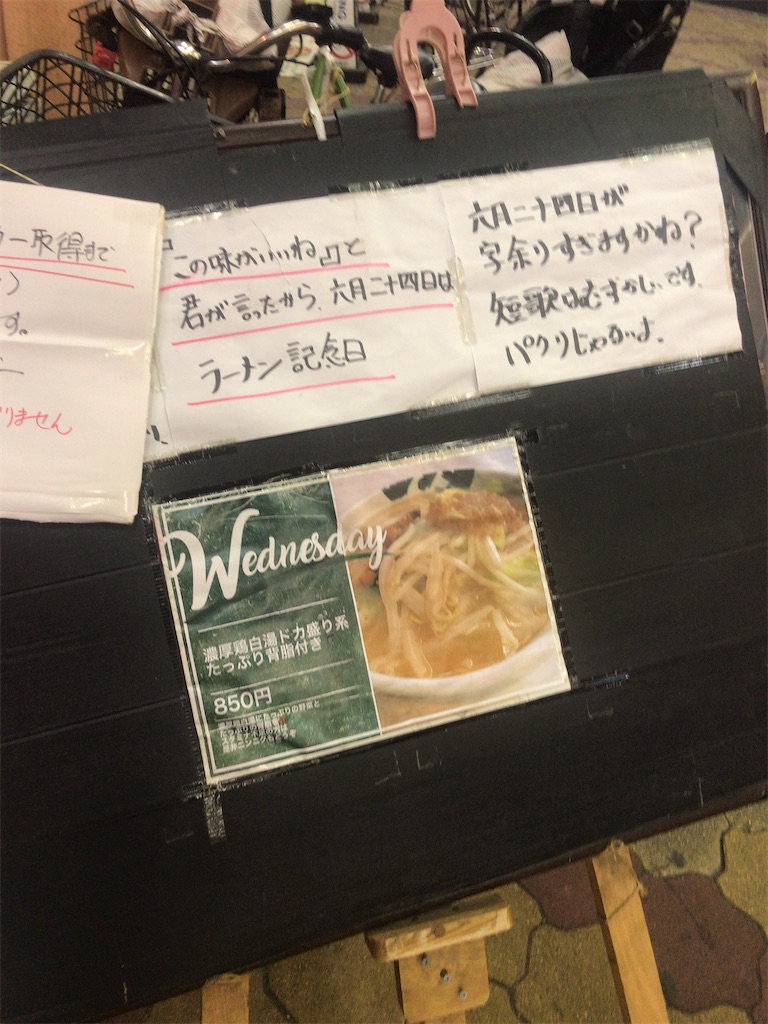 取得まで
す。
りません
『この味がいいね』と
君が言ったから、六月二十四日は
ラーメン記念日
六月二十四日が
字余りすぎますかね?
短歌はむずかしいです。
パクリじゃないよ。
Wednesday
濃厚鶏白湯ドカ盛り系
たっぷり背脂付き
850円